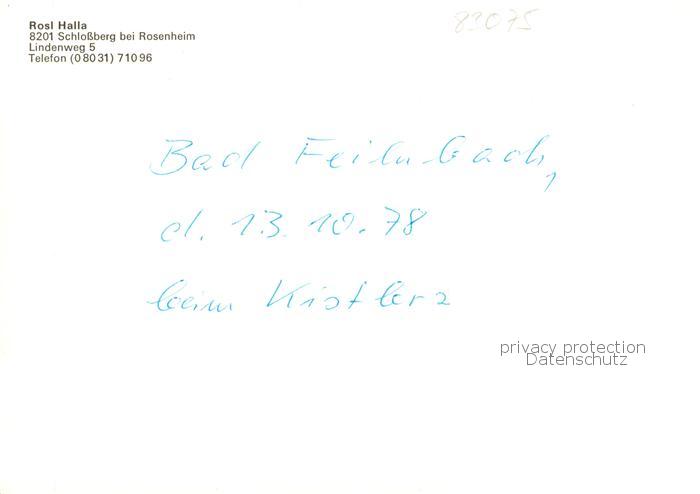 Rosl Halla
8201 Schloßberg bei Rosenheim
Lindenweg 5
Telefon (0 80 31) 7 10 96
83075
Bad Feilnbach,
d. 13. 10. 78
beim Kistlerz
privacy protection
Datenschutz